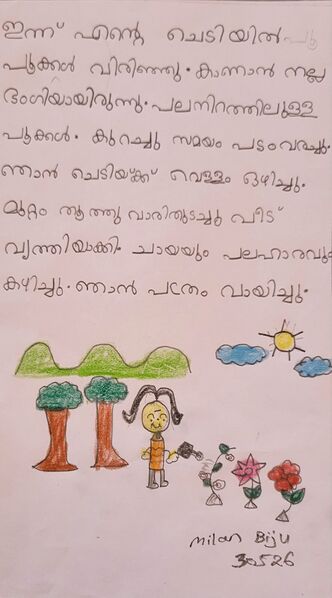 ഇന്ന് എന്റെ ചെടിയിൽ പൂ
പൂക്കൾ വിരിഞ്ഞു. കാണാൻ നല്ല
ഭംഗിയായിരുന്നു. പലനിറത്തിലുള്ള
പൂക്കൾ. കുറച്ചു സമയം പടംവരച്ചു.
ഞാൻ ചെടിയ്ക്ക് വെള്ളം ഒഴിച്ചു.
മുറ്റം തൂത്തു വാരിതുടച്ചു വീട്
വൃത്തിയാക്കി. ചായയും പലഹാരവും
കഴിച്ചു. ഞാൻ പത്രം വായിച്ചു.
Milan Biju
30526